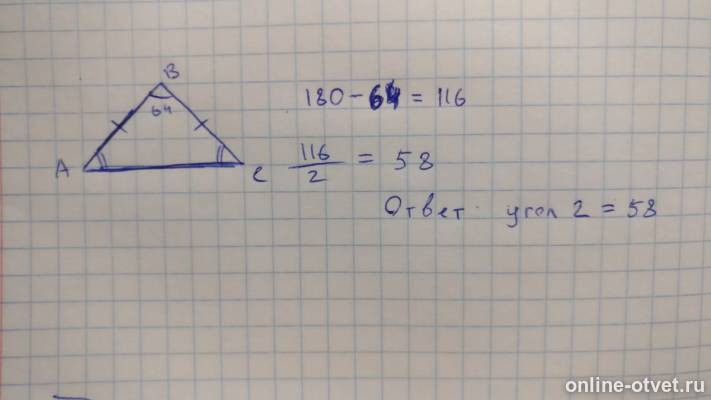 B
64
A
C
180-64 = 116
116
2
= 58
Ответ. угол 2 = 58
online-otvet.ru